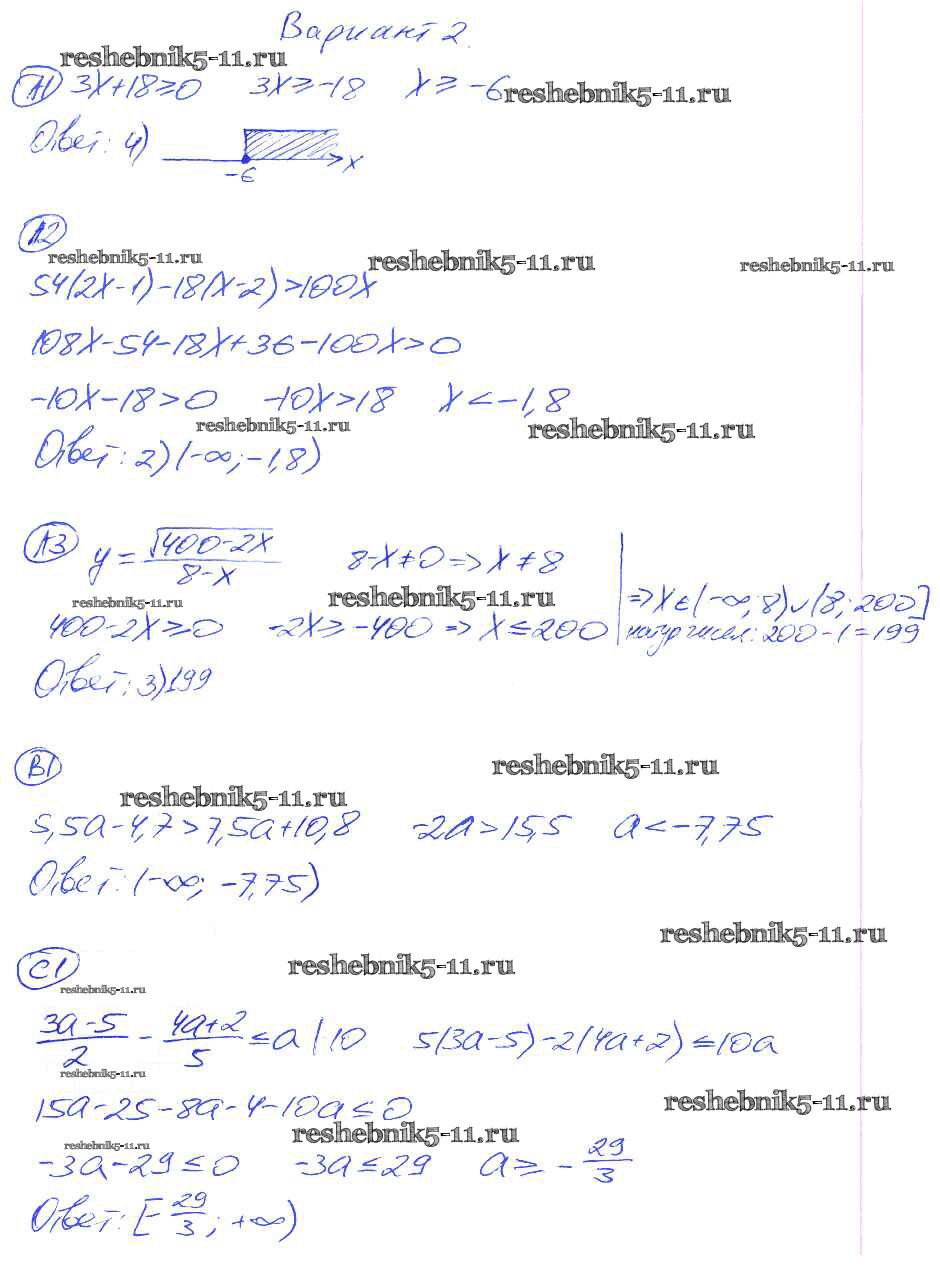 Вариант 2.
reshebnik5-11.ru
А1 3x+18≥0 3x≥-18 x≥-6 reshebnik5-11.ru
Ответ: 4) -6 x
А2
reshebnik5-11.ru reshebnik5-11.ru reshebnik5-11.ru
54(2x-1)-18(x-2)>100x
108x-54-18x+36-100x>0
-10x-18>0 -10x>18 x<-1,8
reshebnik5-11.ru reshebnik5-11.ru
Ответ: 2) (-∞;-1,8)
А3 y = √(400-2x)/(8-x) 8-x≠0 => x≠8
reshebnik5-11.ru reshebnik5-11.ru => x∈(-∞;8)∪(8;200]
400-2x≥0 -2x≥-400 => x≤200 натур чисел: 200-1=199
Ответ: 3) 199
В1 reshebnik5-11.ru
reshebnik5-11.ru
5,5a-4,7>7,5a+10,8 -2a>15,5 a<-7,75
Ответ: (-∞; -7,75)
reshebnik5-11.ru
С1 reshebnik5-11.ru
reshebnik5-11.ru
(3a-5)/2 - (4a+2)/5 ≤ a |·10 5(3a-5)-2(4a+2)≤10a
reshebnik5-11.ru
15a-25-8a-4-10a≤0 reshebnik5-11.ru
reshebnik5-11.ru reshebnik5-11.ru
-3a-29≤0 -3a≤29 a≥-29/3
Ответ: [-29/3; +∞)